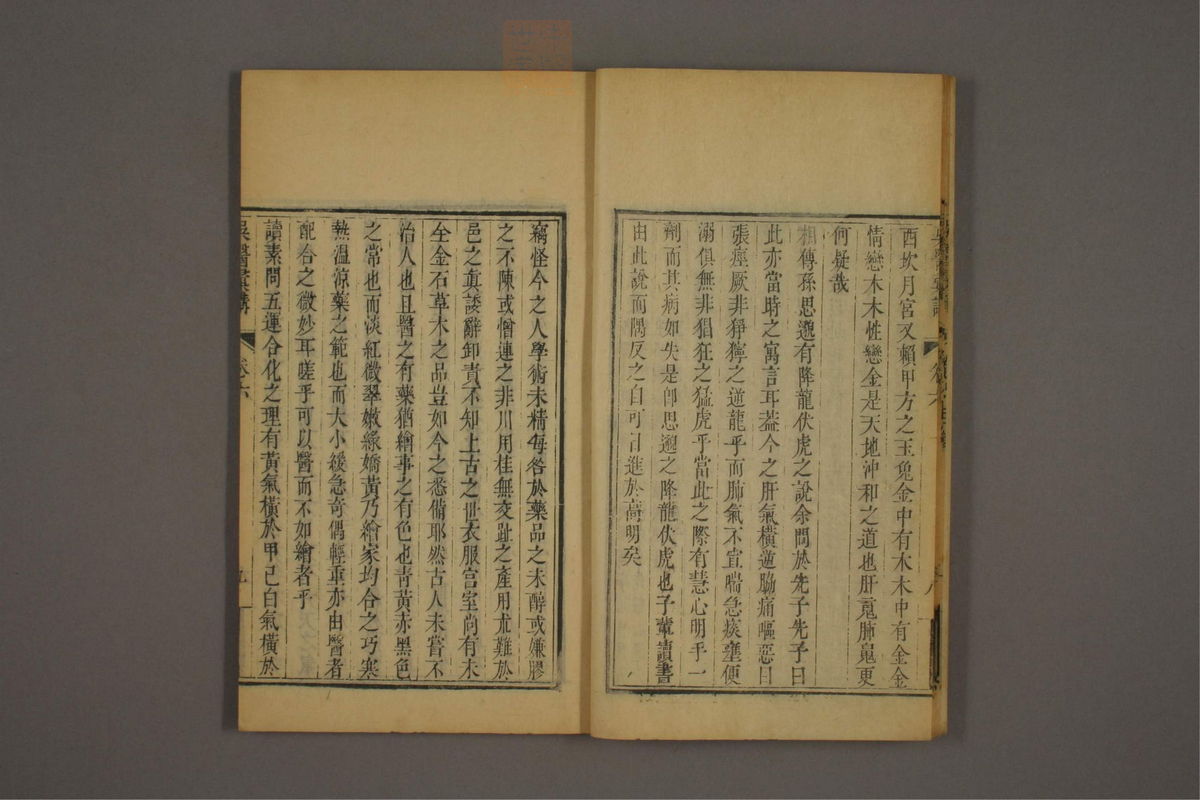 酉坎月宮又賴甲方之玉兔金中有木木中有金金
情戀木木性戀金是天地沖和之道也肝䰟肺䰟更
何疑哉
相傳孫思邈有降龍伏虎之說余問於先子先子曰
此亦當時之寓言耳葢今之肝氣橫逆脇痛嘔惡目
張痙厥非猙獰之逆龍乎而肺氣不宣喘急痰壅便
溺俱無非猖狂之猛虎乎當此之際有慧心明乎一
劑而其病如失是卽思邈之降龍伏虎也子輩讀書
由此說而隅反之自可日進於高明矣
竊怪今之人學術未精每咎於藥品之未醇或嫌膠
之不陳或憎連之非川用桂無交趾之產用朮難於
邑之眞諉辭卸責不知上古之世衣服宫室尚有未
全金石草木之品豈如今之悉備耶然古人未嘗不
治人也且醫之有藥猶繪事之有色也青黃赤黑色
之常也而淡紅微翠嫩綠嬌黃乃繪家均合之巧寒
熱溫涼藥之範也而大小緩急奇偶輕重亦由醫者
配合之微妙耳嗟乎可以醫而不如繪者乎
讀素問五運合化之理有黃氣橫於甲己白氣橫於
吳醫彙講
卷六
九